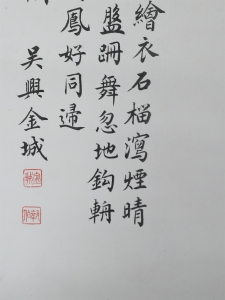 繪衣石榴瀉煙晴
盤跚舞忽地鈎輈
鳳好同歸
吳興金城